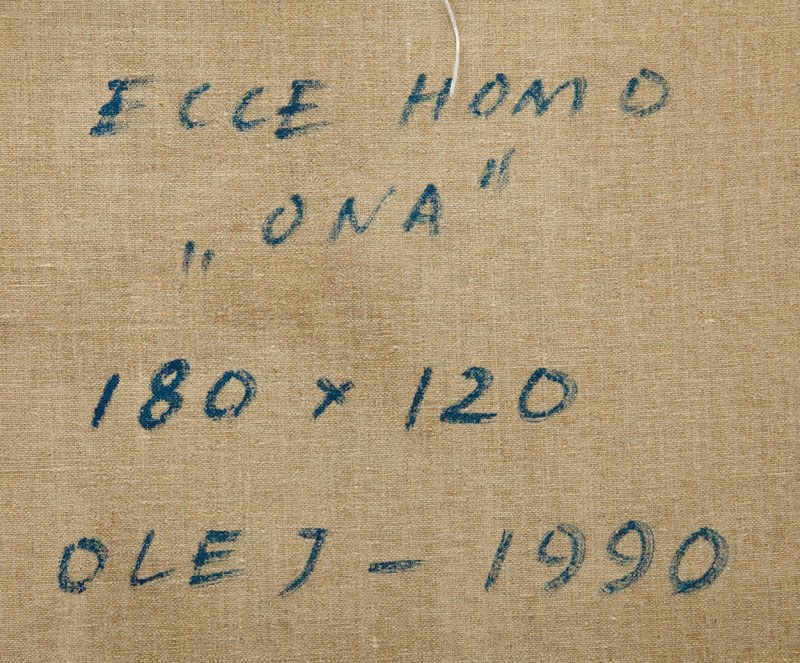 ECCE HOMO
„ONA"
180 x 120
OLEJ – 1990